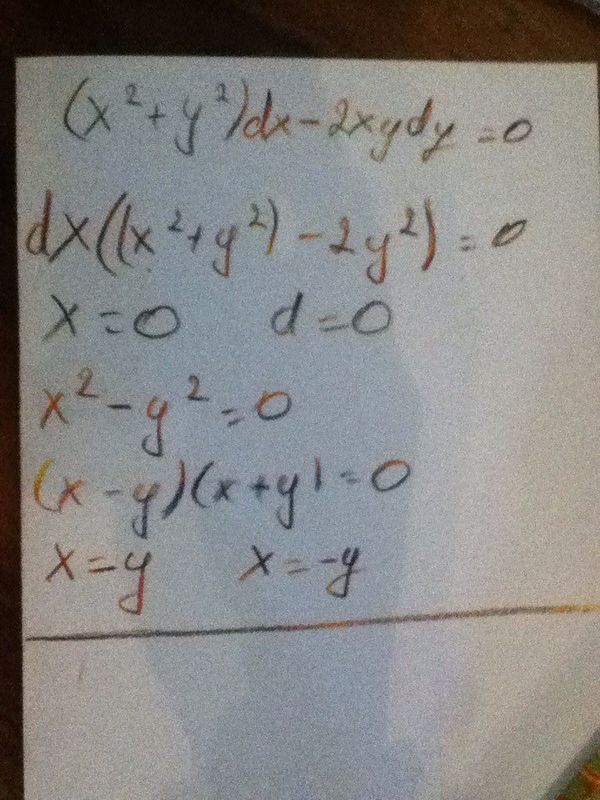 (x²+y²)dx-2xydy=0
dx((x²+y²)-2y²)=0
x=0 d=0
x²-y²=0
(x-y)(x+y)=0
x=y x=-y